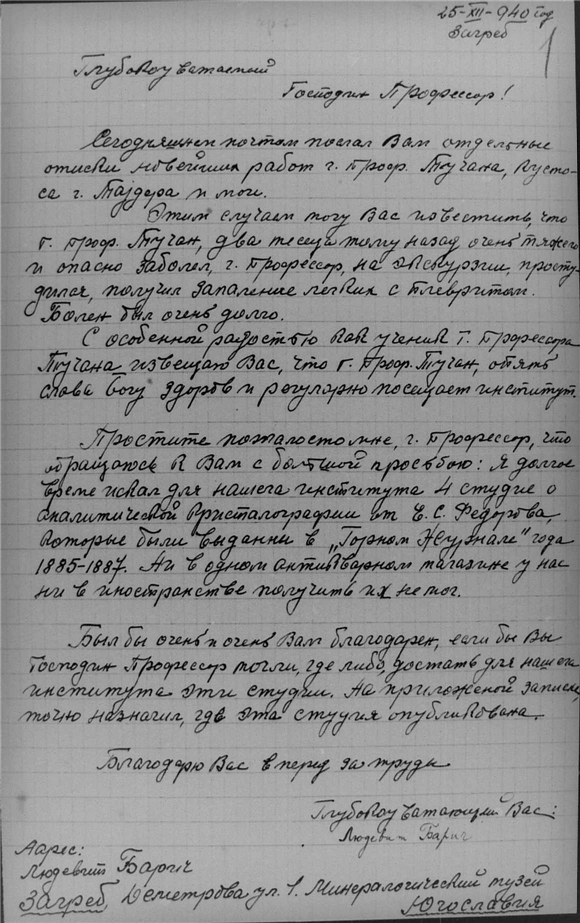 25-XII-940 год
Загреб
1
Глубокоуважаемый
Господин Профессор!
Сегодняшнем почтом послал Вам отдельные
отиски новейших работ г. проф. Тучана, кусто-
са г. Тајдера и мои.
Этим случаем могу Вас известить, что
г. проф. Тучан, два месеца тому назад очень тяжело
и опасно заболел, г. Профессор, на экскурзии, просту-
дился, получил запаление легких с плевритом.
Болен был очень долго.
С особенной радостью как ученик г. Профессора
Тучана извещаю Вас, что г. Проф. Тучан, опять
слава богу здоров и регулярно посещает институт.
Простите пожалосто мне, г. Профессор, что
обращаюсь к Вам с большой просьбою: Я долгое
време искал для нашега института 4 студие о
аналитической кристалографии от Е. С. Федорова,
которые были выданни в „Горном Журнале" года
1885-1887. Ни в одном антикварном магазине у нас
ни в иностранстве получить их не мог.
Был бы очень и очень Вам благодарен, если бы Вы
Господин Профессор могли, где либо, достать для нашега
института эти студии. На приложеной записке,
точно назначил, где эта студия опубликована.
Благодарю Вас в перед за труды
Глубокоуважающий Вас:
Людевит Барич
Адрес:
Людевит Барич
Загреб, Деметрова ул. 1. Минералогический музей
Югославия